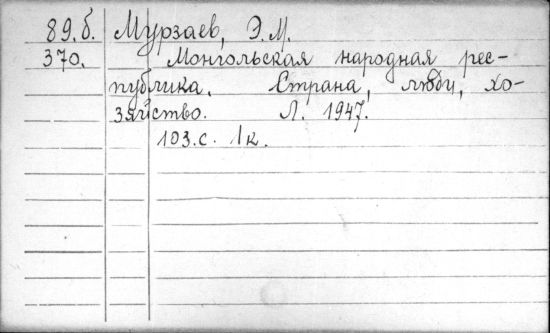 89.б. Мурзаев, Э.М.
370. Монгольская народная рес-
публика. Страна, люди, хо-
зяйство. Л. 1947.
103.с. 1к.